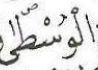 الْوُسْطَّى